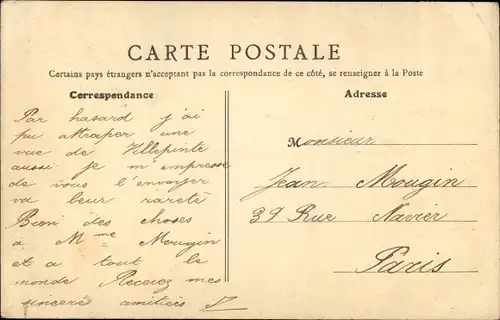 CARTE POSTALE
Certains pays étrangers n'acceptant pas la correspondance de ce côté, se renseigner à la Poste
Correspondance
Par hasard j'ai
pu attraper une
vue de Villepinte
aussi je m'empresse
de vous l'envoyer
va leur rareté
Bien des choses
à Mme Mougin
et a tout le
monde Recevez mes
sincères amitiés
Adresse
Monsieur
Jean Mougin
39 Rue Navier
Paris